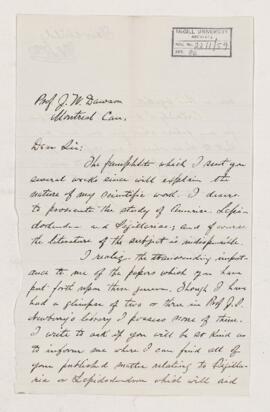 McGILL UNIVERSITY
ARCHIVES
ACC. NO. 2211/59
REF.
Prof. J. W. Dawson
Montreal Can.
Dear Sir:
The pamphlets which I sent you
several weeks since will explain the
nature of my scientific work. I desire
to prosecute the study of American Lepi-
dodendra and Sigillarias; and of course
the literature of the subject is indispensible.
I realize the transcending import-
ance to me of the papers which you have
put forth upon this genera. Though I have
had a glimpse of two or three in Prof. J. S.
Newberry's library I possess none of them.
I write to ask if you will be so kind as
to inform me where I can find all of
your published matter relating to Sigilla-
ria or Lepidodendron which will aid